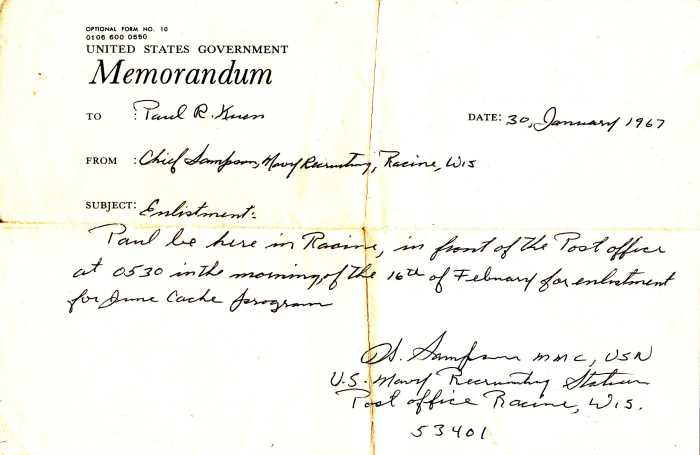 OPTIONAL FORM NO. 10
0106 600 0550
UNITED STATES GOVERNMENT
Memorandum
TO : Paul R. Kuen
DATE: 30, January 1967
FROM : Chief Sampson, Navy Recruiting, Racine, Wis
SUBJECT: Enlistment.
Paul be here in Racine, in front of the Post office
at 0530 in the morning, of the 16th of Febuary for enlistment
for June Cache program
Sampson MMC, USN
U.S. Navy Recruiting Station
Post office Racine, Wis.
53401